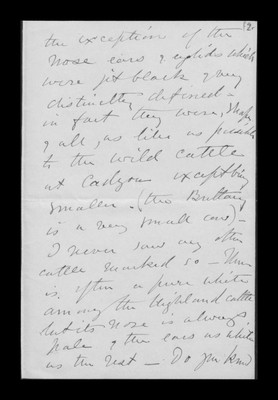 2.
the exception of the
nose ears & eyelids which
were jet black & very
distinctly defined -
in fact they were, shape
& all, as like as possible
to the wild cattle
at Cadzow excepting
smaller - (the Brittany
is a very small cow) -
I never saw any other
cattle marked so - There
is often a pure white
among the Highland cattle
but its nose is always
pale & the ears as white
as the rest - Do you know